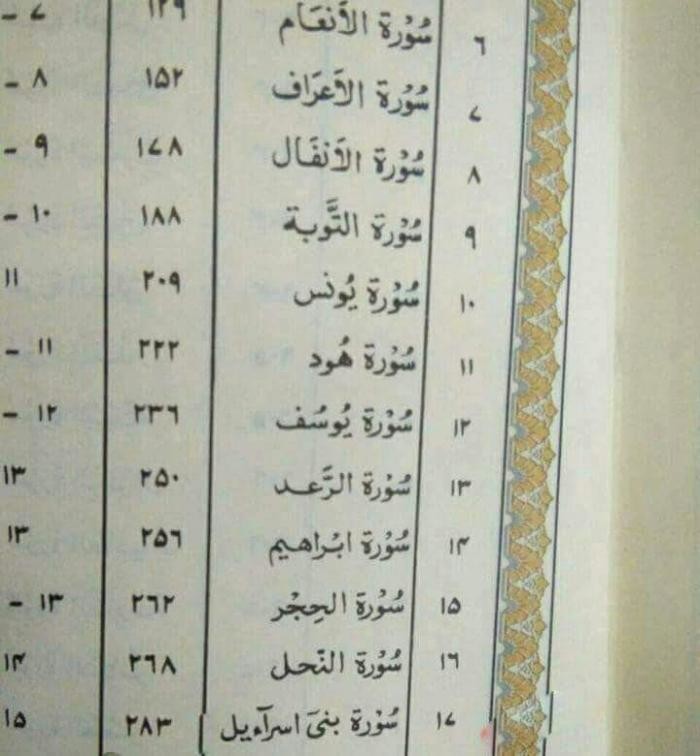 ٦ سُوْرَة الأَنعَام ١٢٩ ٧ -
٧ سُوْرَة الأَعرَاف ١٥٢ ٨ -
٨ سُوْرَة الأَنفَال ١٧٨ ٩ -
٩ سُوْرَة التَّوبَة ١٨٨ ١٠ -
١٠ سُوْرَة يُونس ٢٠٩ ١١
١١ سُوْرَة هُود ٢٢٢ ١١ -
١٢ سُوْرَة يُوسُف ٢٣٦ ١٢ -
١٣ سُوْرَة الرَّعد ٢٥٠ ١٣
١۴ سُوْرَة ابْراهيم ٢٥٦ ١٣
١٥ سُوْرَة الحِجْر ٢٦٢ ١٣ -
١٦ سُوْرَة النَحل ٢٦٨ ١۴
١٧ سُوْرَة بنىَ اسرآءيل ٢٨٣ ١٥